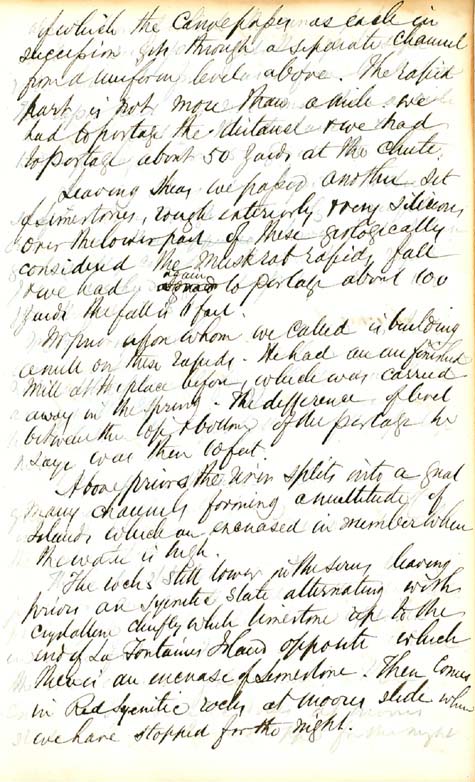 of which the canoe passes as each in
succession gets through a separate channel
from a uniform level above. The rapid
part is not more than a mile & we
had to portage the distance & we had
to portage about 50 yards at the chute.
Leaving these we passed another set
of limestones, rough exteriorly & very silicious
Over the lower part of these geologically
considered the Muskrat rapids fall
& we had again to portage about 100
yards the fall is 6 feet.
upon whom we called is building
a mill on these rapids. He had an unfinished
mill at this place before, which was carried
away in the spring. The difference of level
between the top & bottom of the portage he
says was then 10 feet.
Above Priors the river splits into a great
many channels forming a multitude of
Islands which are increased in number when
the water is high.
The rocks still lower in the series leaving
Priors are syenitic slate alternating with
crystalline chiefly white limestone up to the
end of La Fontaines Island opposite which
there is an increase of limestone. Then comes
in Red Syenitic rocks at Moores slide where
we have stopped for the night.